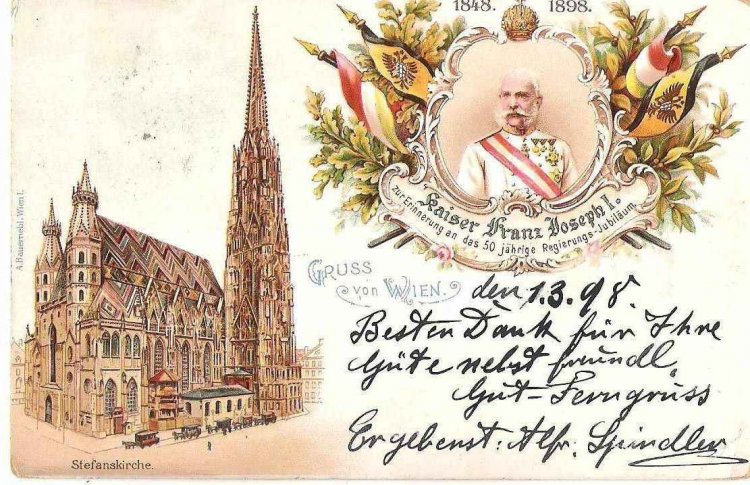 1848. 1898.
Kaiser Franz Joseph I.
zur Erinnerung an das 50 jährige Regierungs-Jubiläum
GRUSS
von WIEN.
den 1.3.98.
Besten Dank für Ihre
Güte nebst freundl.
Gut-Ferngruss
Ergebenst: Alfr. Spindler
A. Bauernebl. Wien I.
Stefanskirche.